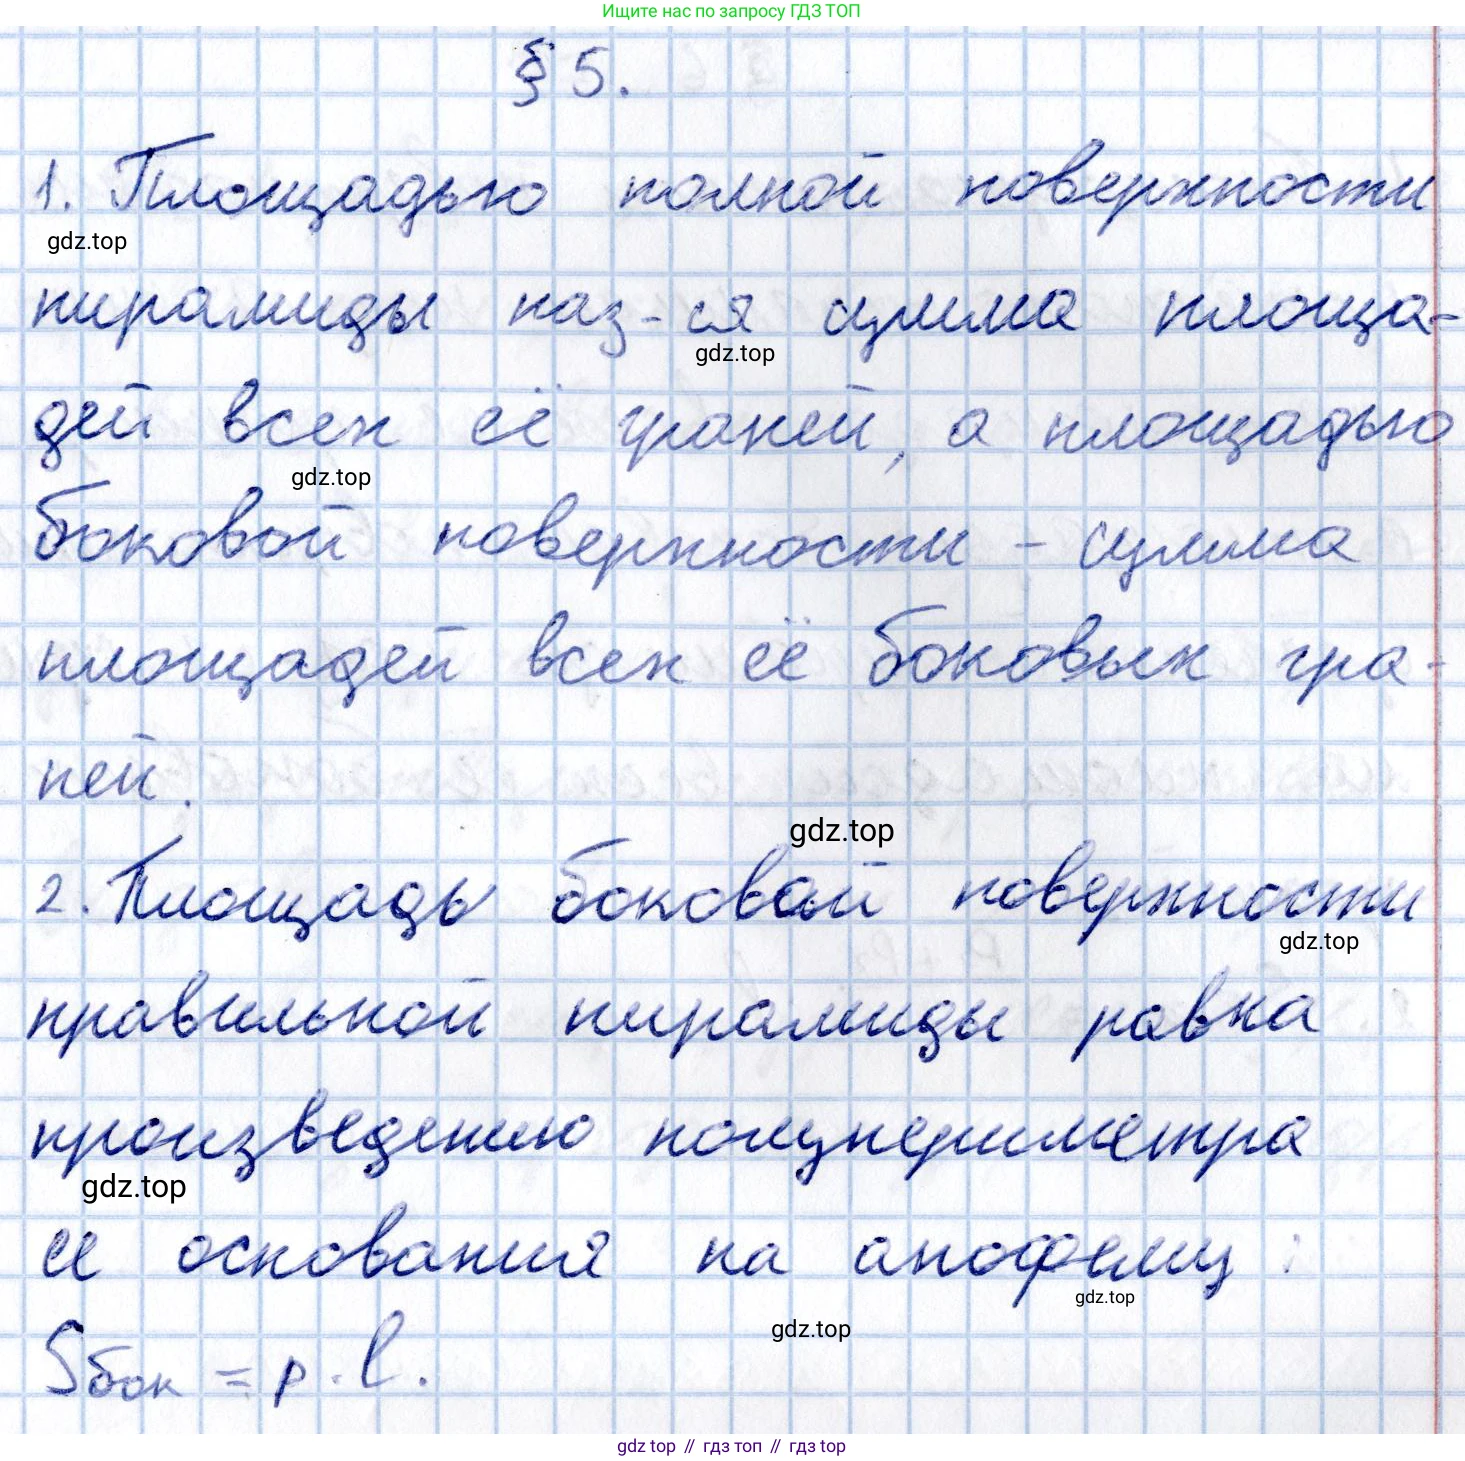 Ищите нас по запросу ГДЗ ТОП
§ 5.
1. Площадью полной поверхности
gdz.top
пирамиды наз-ся сумма площа-
gdz.top
дей всех её граней, а площадью
gdz.top
боковой поверхности - сумма
площадей всех её боковых гра-
ней.
gdz.top
2. Площадь боковой поверхности
gdz.top
правильной пирамиды равна
произведению полупериметра
gdz.top
ее основания на апофему:
gdz.top
gdz.top
Sбок = p · l.
gdz top // гдз топ // гдз top